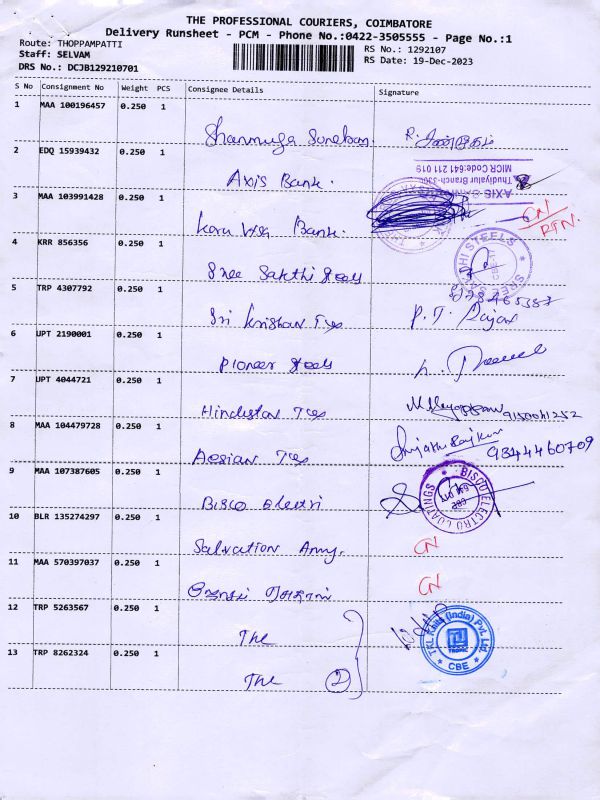 THE PROFESSIONAL COURIERS, COIMBATORE
Delivery Runsheet - PCM - Phone No.:0422-3505555 - Page No.:1
Route: THOPPAMPATTI
RS No.: 1292107
Staff: SELVAM
RS Date: 19-Dec-2023
DRS No.: DCJB129210701
S No Consignment No Weight PCS Consignee Details Signature
1 MAA 100196457 0.250 1
Shanmuga
2 EDQ 15939432 0.250 1
Axis Bank.
AXIS BANK
Thudiyalur Branch
MICR Code:641 211 019
3 MAA 103991428 0.250 1
Bank.
CN/
RTN.
4 KRR 856356 0.250 1
Sree Sakthi Steels
SREE SAKTHI STEELS
5 TRP 4307792 0.250 1
Sri Krishna
P. T. Rajan
6 UPT 2190001 0.250 1
Pioneer Steels
7 UPT 4044721 0.250 1
Hindustan
8 MAA 104479728 0.250 1
9344460709
9 MAA 107387605 0.250 1
Bisco Electri
BISCO ELECTRO COATINGS
10 BLR 135274297 0.250 1
Salvation Army.
CN
11 MAA 570397037 0.250 1
CN
12 TRP 5263567 0.250 1
The
13 TRP 8262324 0.250 1
The 2
TKL Knits (India) Pvt. Ltd.
TROPIC
CBE